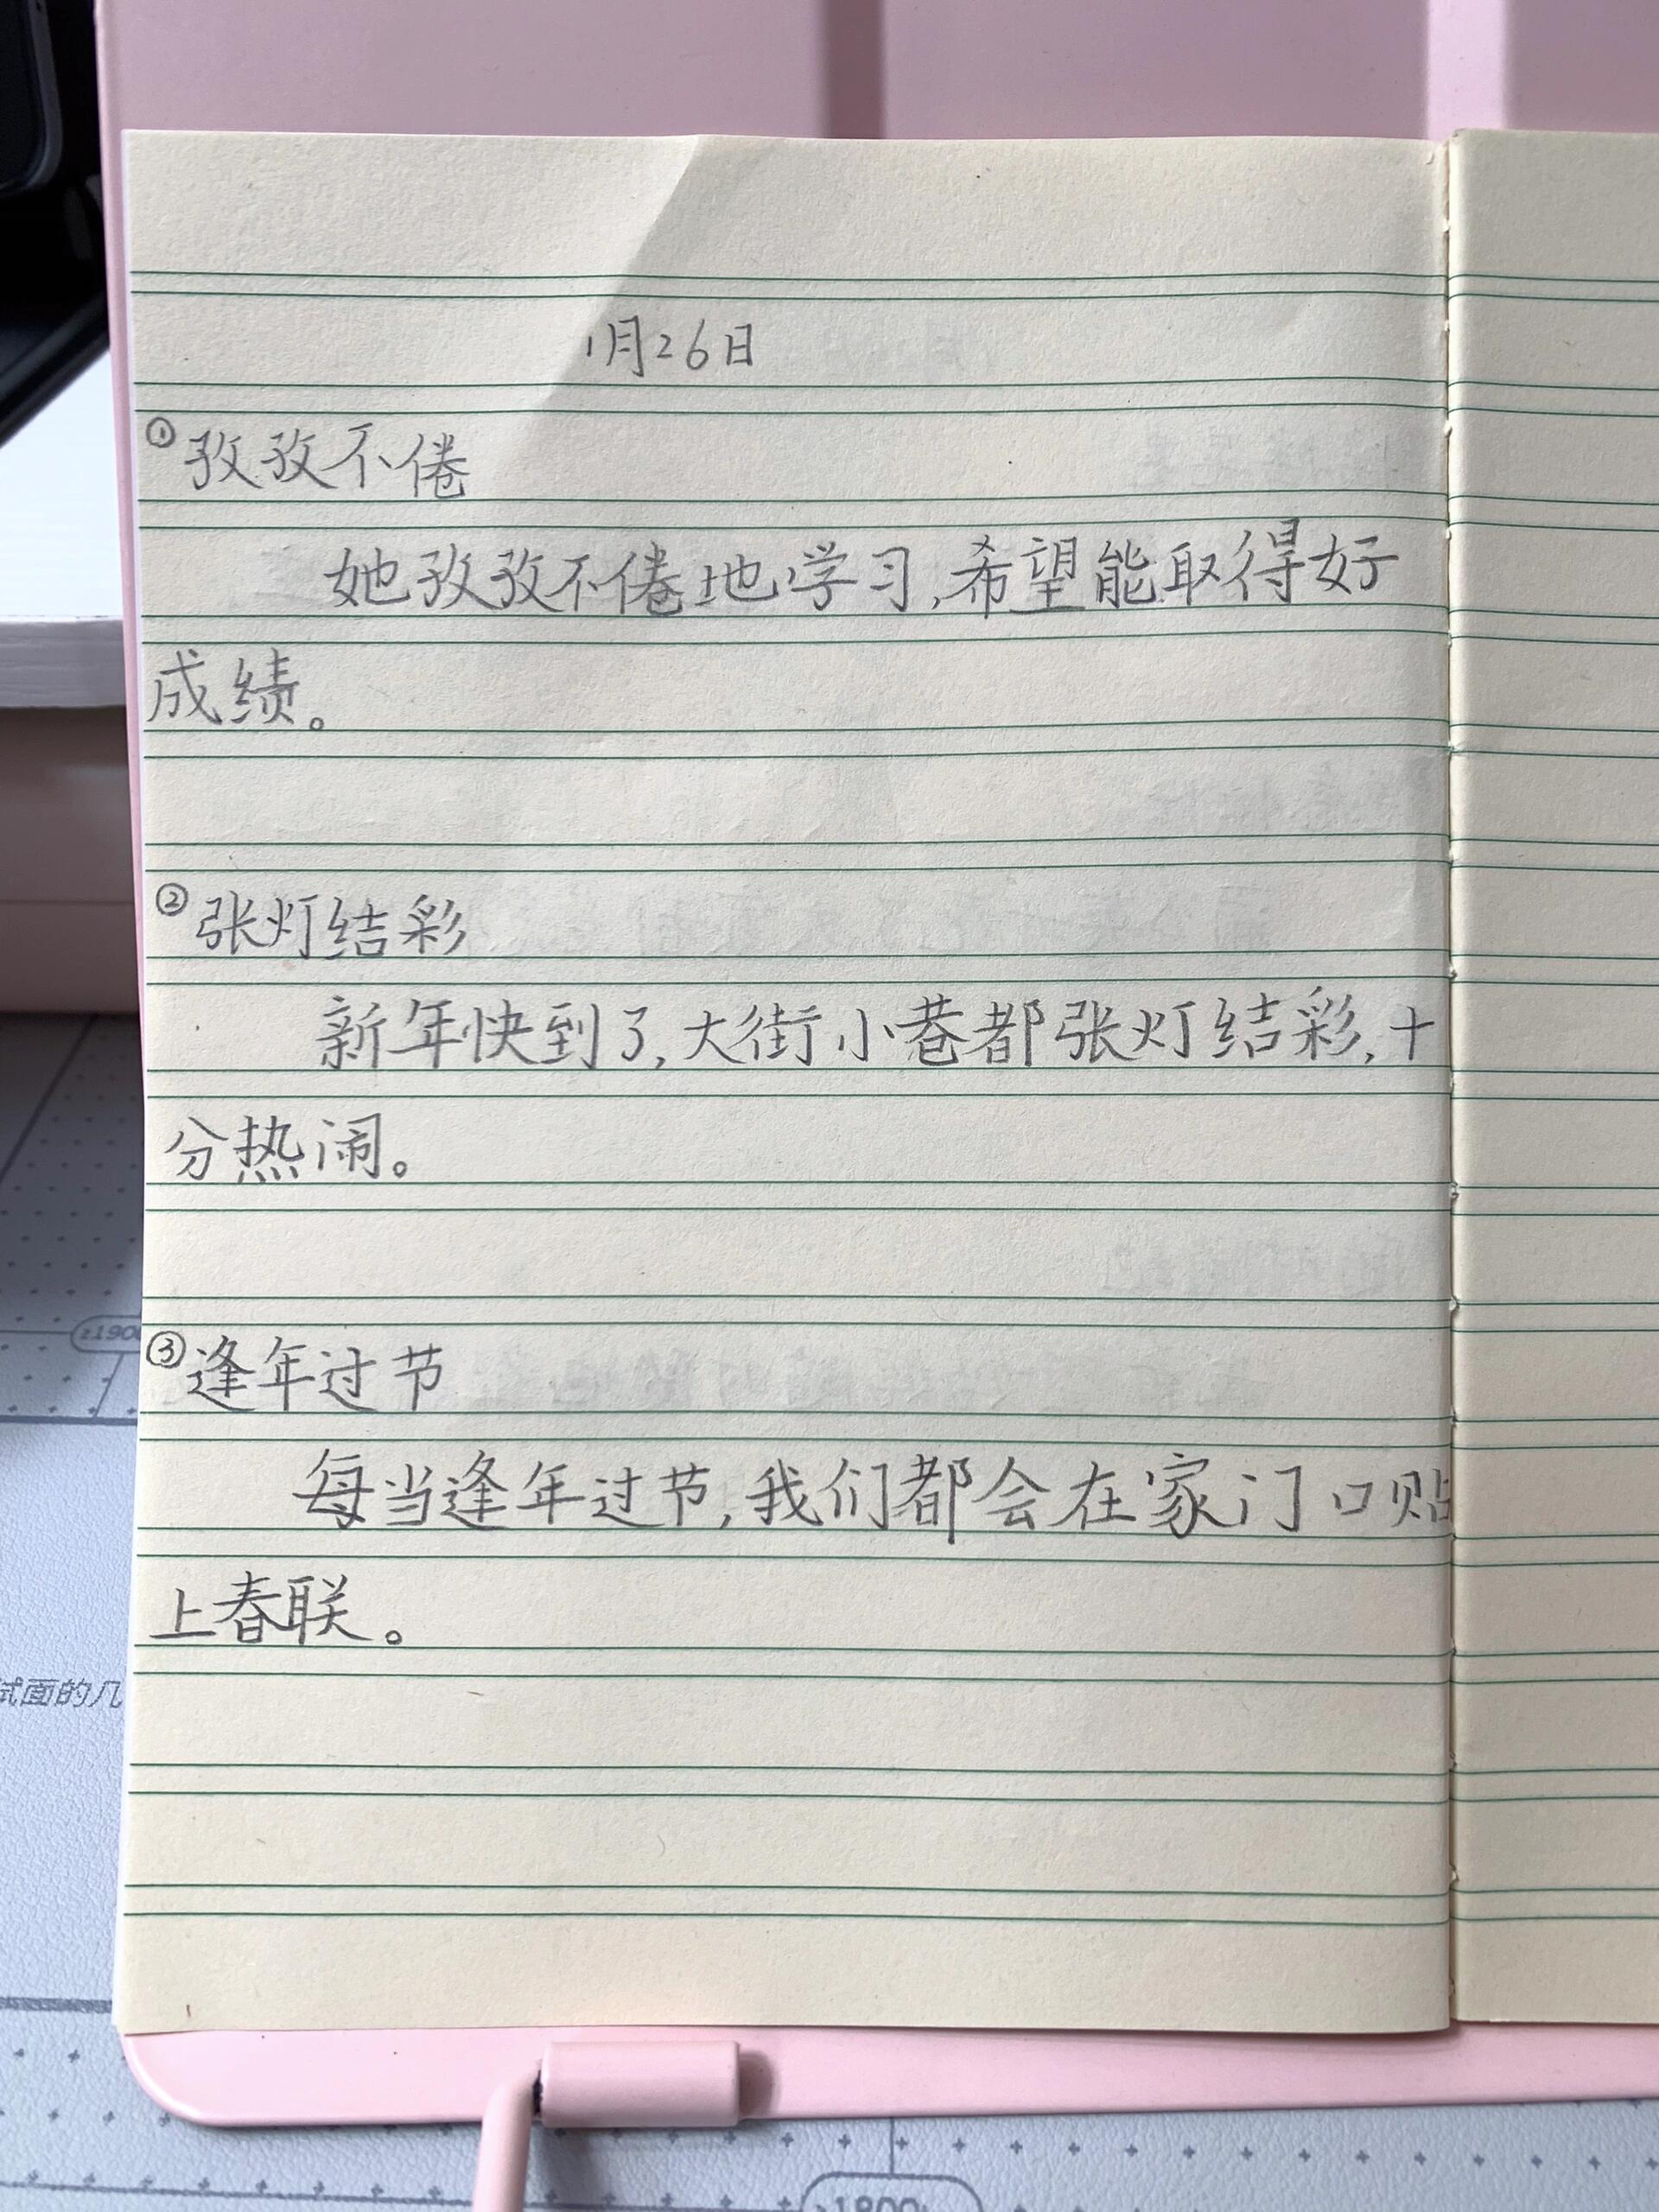 1月26日
①孜孜不倦
她孜孜不倦地学习,希望能取得好
成绩。
②张灯结彩
新年快到了,大街小巷都张灯结彩,十
分热闹。
③逢年过节
每当逢年过节,我们都会在家门口贴
上春联。
z1900
试面的几
1800